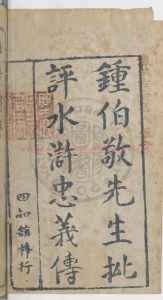 鍾伯敬先生批
評水滸忠義傳
四知館梓行